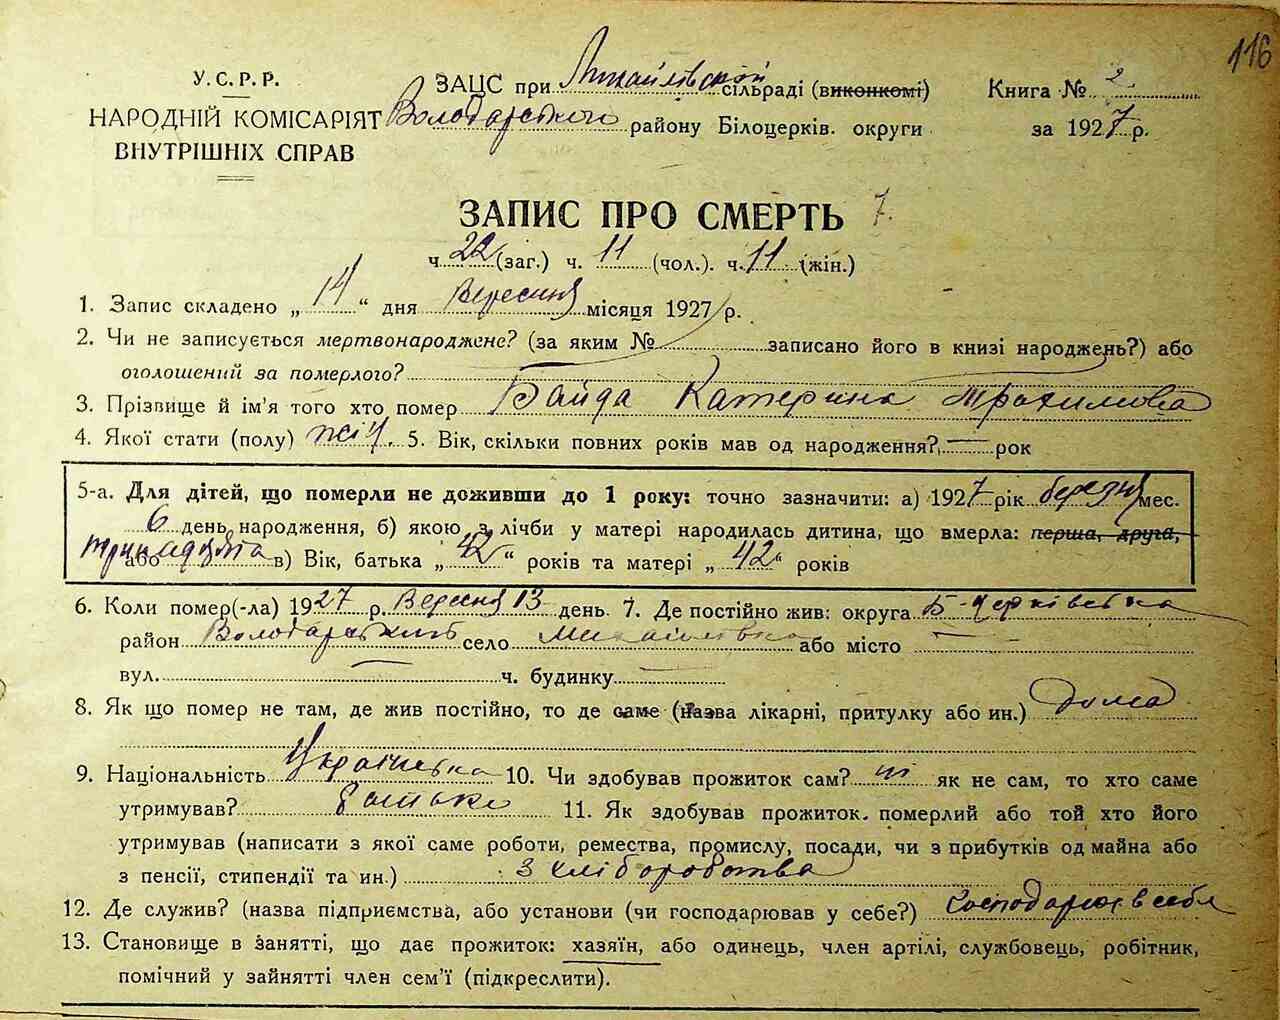 116
У.С.Р.Р. ЗАЦС при Михайлівской сільраді (виконкомі) Книга № 2
НАРОДНІЙ КОМІСАРІЯТ Володарського району Білоцерків. округи за 1927 р.
ВНУТРІШНІХ СПРАВ
ЗАПИС ПРО СМЕРТЬ 7.
ч. 22 (заг.) ч. 11 (чол.). ч. 11 (жін.)
1. Запис складено „ 14 “ дня Вересня місяця 1927 р.
2. Чи не записується мертвонароджене? (за яким № записано його в книзі народжень?) або
оголошений за померлого?
3. Прізвище й ім'я того хто помер Байда Катерина Трохимовa
4. Якої стати (полу) жін. 5. Вік, скільки повних років мав од народження? — рок
5-а. Для дітей, що померли не доживши до 1 року: точно зазначити: а) 1927 рік березня мес.
6 день народження, б) якою з лічби у матері народилась дитина, що вмерла: перша, друга,
або тринадцята в) Вік, батька „ 42 “ років та матері „ 42 “ років
6. Коли помер(-ла) 1927 р. Вересня 13 день. 7. Де постійно жив: округа Б-Церківська
район Володарський село Михайлівка або місто —
вул. — ч. будинку —
8. Як що помер не там, де жив постійно, то де саме (назва лікарні, притулку або ин.) дома
9. Національність Українка 10. Чи здобував прожиток сам? ні як не сам, то хто саме
утримував? батьки 11. Як здобував прожиток. померлий або той хто його
утримував (написати з якої саме роботи, ремества, промислу, посади, чи з прибутків од майна або
з пенсії, стипендії та ин.) З хліборобства
12. Де служив? (назва підприємства, або установи (чи господарював у себе?) Господарює в себе
13. Становище в занятті, що дає прожиток: хазяїн, або одинець, член артілі, службовець, робітник,
помічний у зайнятті член сем'ї (підкреслити).